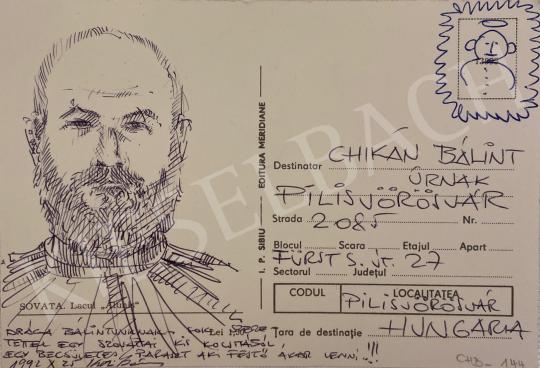 SOVATA. Lacul „Aluniș"
Lei 1,00
DRAGA BÁLINTUNKNAK, SOK SZERE
TETTEL EGY SZOVÁTAI KIS KOLITÁSÓL,
EGY BECSÜLETES PARASZT AKI FESTŐ AKAR LENNI..!!!
1992 X 25
I. P. SIBIU — EDITURA MERIDIANE
Destinatar CHIKÁN BÁLINT
ÚRNAK
PILISVÖRÖSVÁR
Strada 2085 Nr.
Blocul Scara Etajul Apart
FÜRST S. ÚT. 27
Sectorul Județul
CODUL LOCALITATEA
PILISVÖRÖSVÁR
Țara de destinație HUNGARIA
CHB_144
KIESELBACH